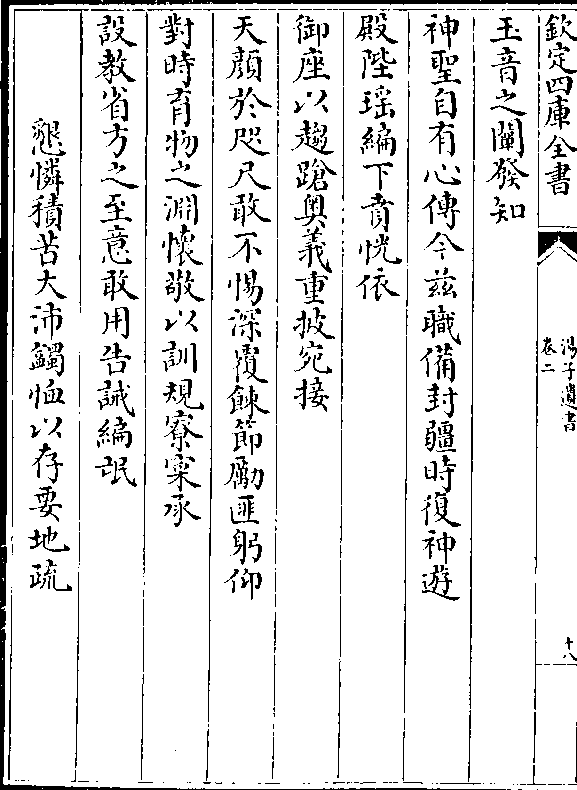 欽定四庫全書
湯子遺書
卷二
十八
玉音之闡發知
神聖自有心傳今茲職備封疆時復神遊
殿陛瑶編下賁恍依
御座以趨蹌奥義重披宛接
天顔於咫尺敢不惕深覆餗節勵匪躬仰
對時育物之淵懷敬以訓規寮寀承
設教省方之至意敢用告誡編氓
懇憐積苦大沛蠲恤以存要地疏